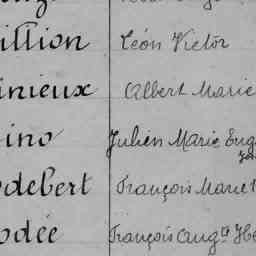 illion Léon Victor
inieux Albert Marie
ino Julien Marie Eug
odebert François Marie
odée François Aug